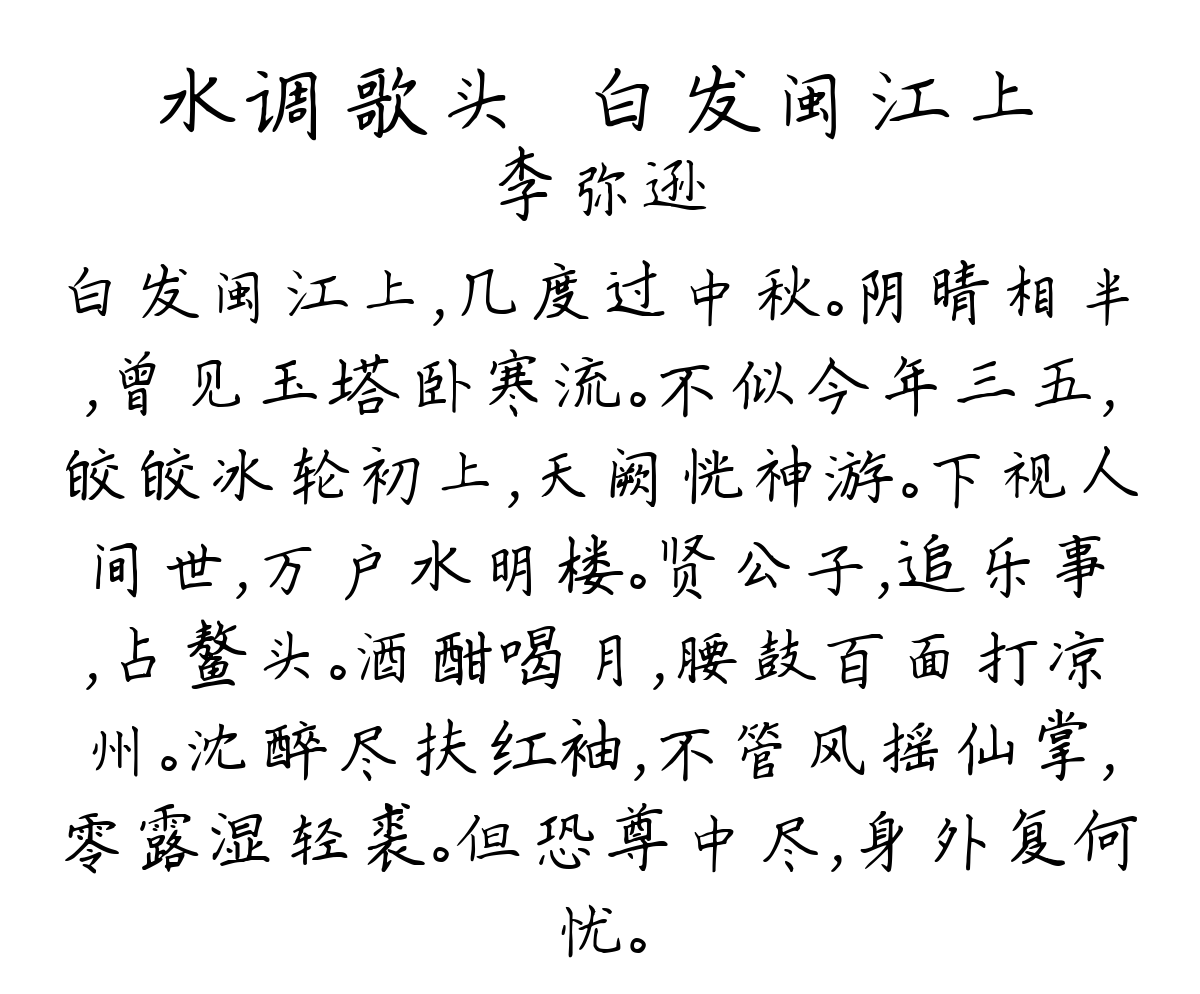 水调歌头 白发闽江上
李弥逊
白发闽江上,几度过中秋。阴晴相半
,曾见玉塔卧寒流。不似今年三五,
皎皎冰轮初上,天阙恍神游。下视人
间世,万户水明楼。贤公子,追乐事
,占鳌头。酒酣喝月,腰鼓百面打凉
州。沈醉尽扶红袖,不管风摇仙掌,
零露湿轻裘。但恐尊中尽,身外复何
忧。